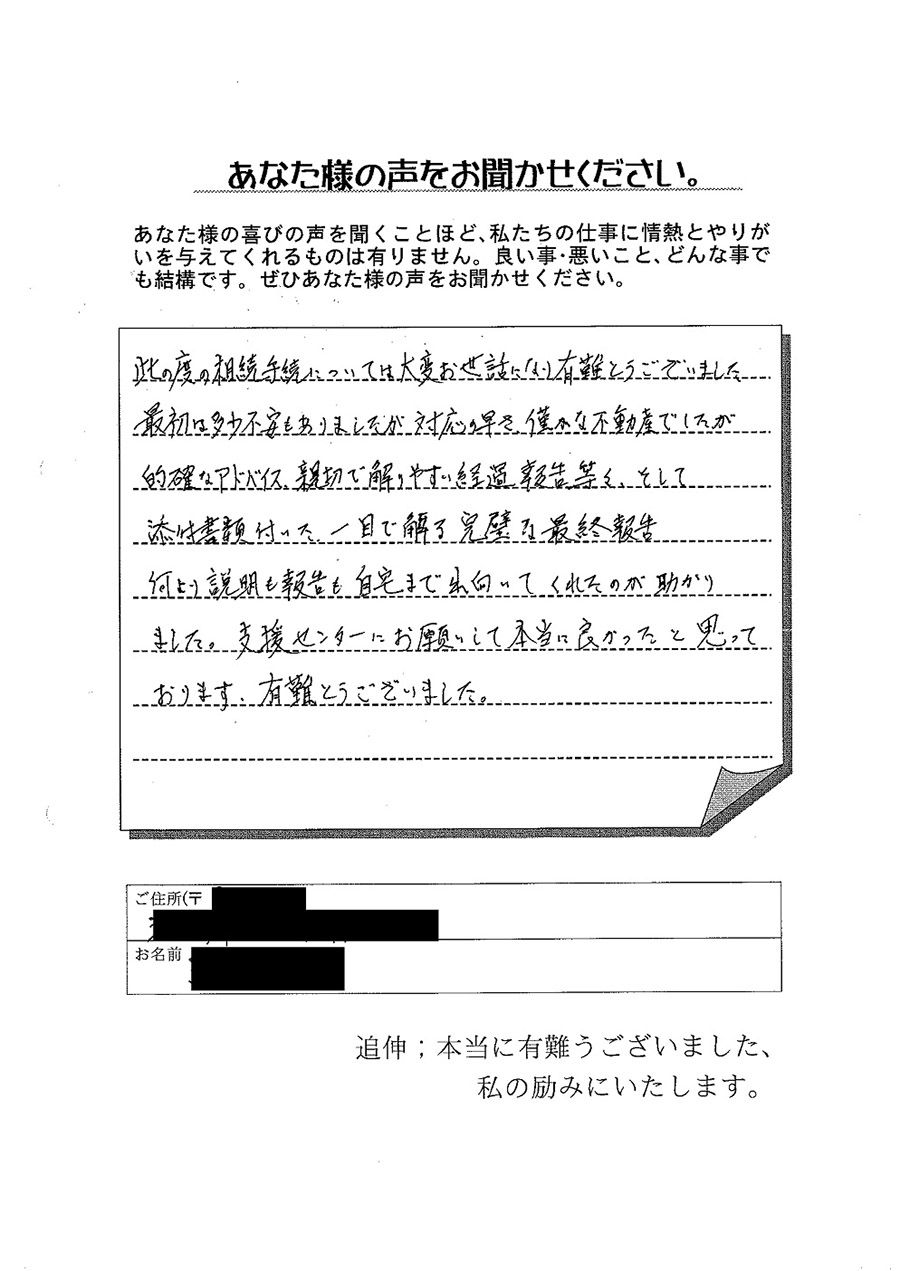 あなた様の声をお聞かせください。
あなた様の喜びの声を聞くことほど、私たちの仕事に情熱とやりが
いを与えてくれるものは有りません。良い事・悪いこと、どんな事で
も結構です。ぜひあなた様の声をお聞かせください。
此の度の相続手続については大変お世話になり有難とうございました
最初は多少不安もありましたが対応の早さ、僅かな不動産でしたが
的確なアドバイス、親切で解りやすい経過報告等々、そして
添付書類付いた、一目で解る完璧な最終報告
何より説明も報告も自宅まで出向いてくれたのが助かり
ました。支援センターにお願いして本当に良かったと思って
おります。有難とうございました。
ご住所(〒
お名前
追伸；本当に有難うございました、
私の励みにいたします。